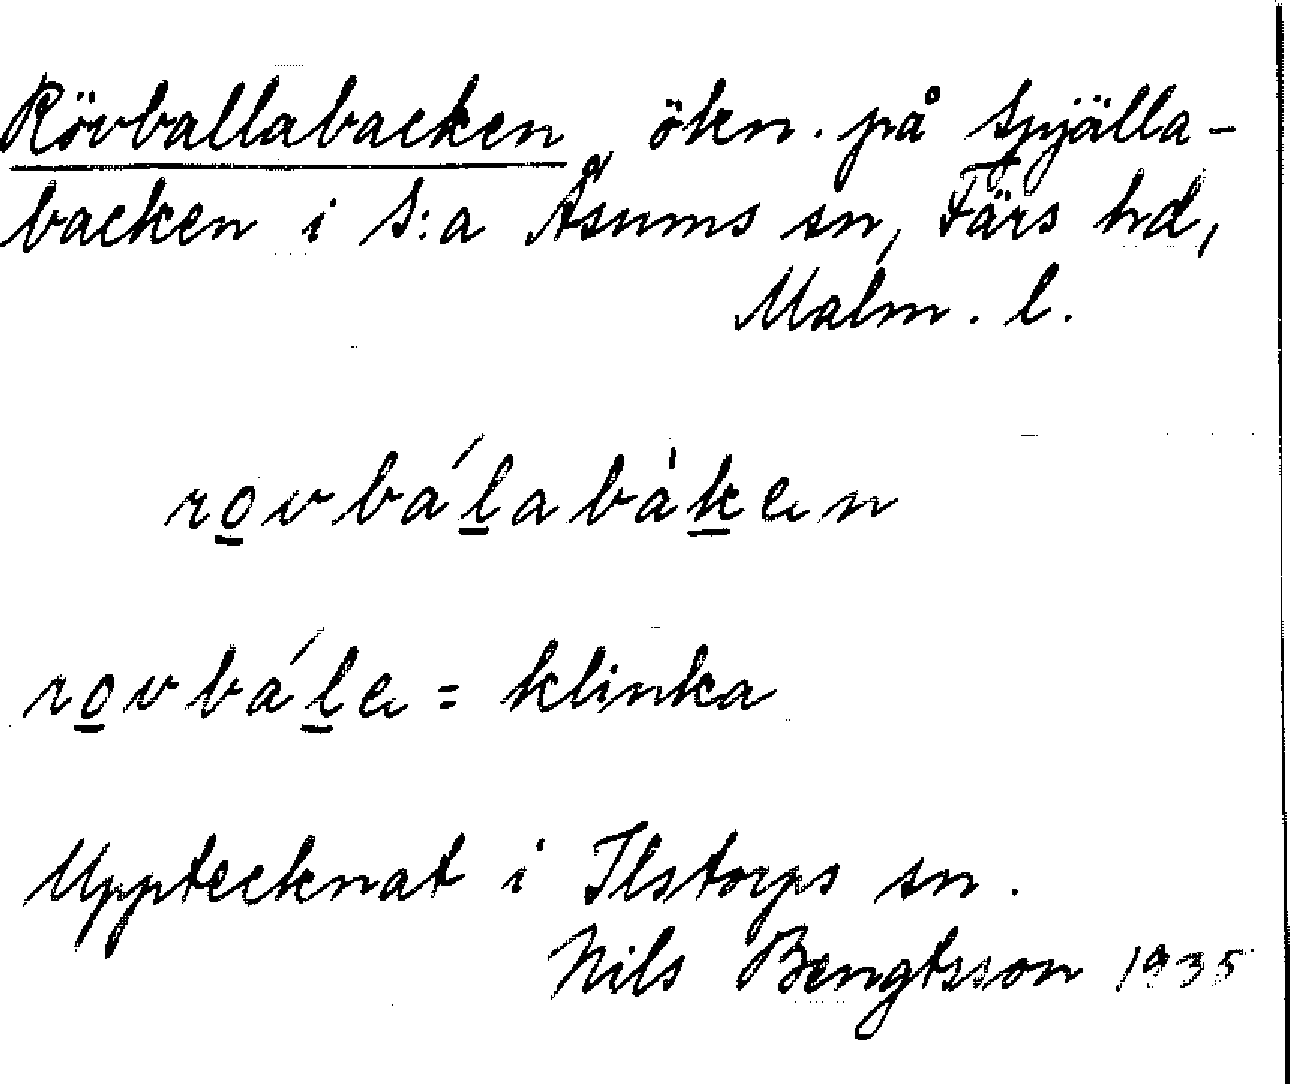 Rövballabacken ökn. på Spjälla-
backen i S:a Åsums sn, Färs hd,
Malm. l.
ro̲vbál̲abàk̲en
ro̲vbál̲e = klinka
Upptecknat i Ilstorps sn.
Nils Bengtsson 1935